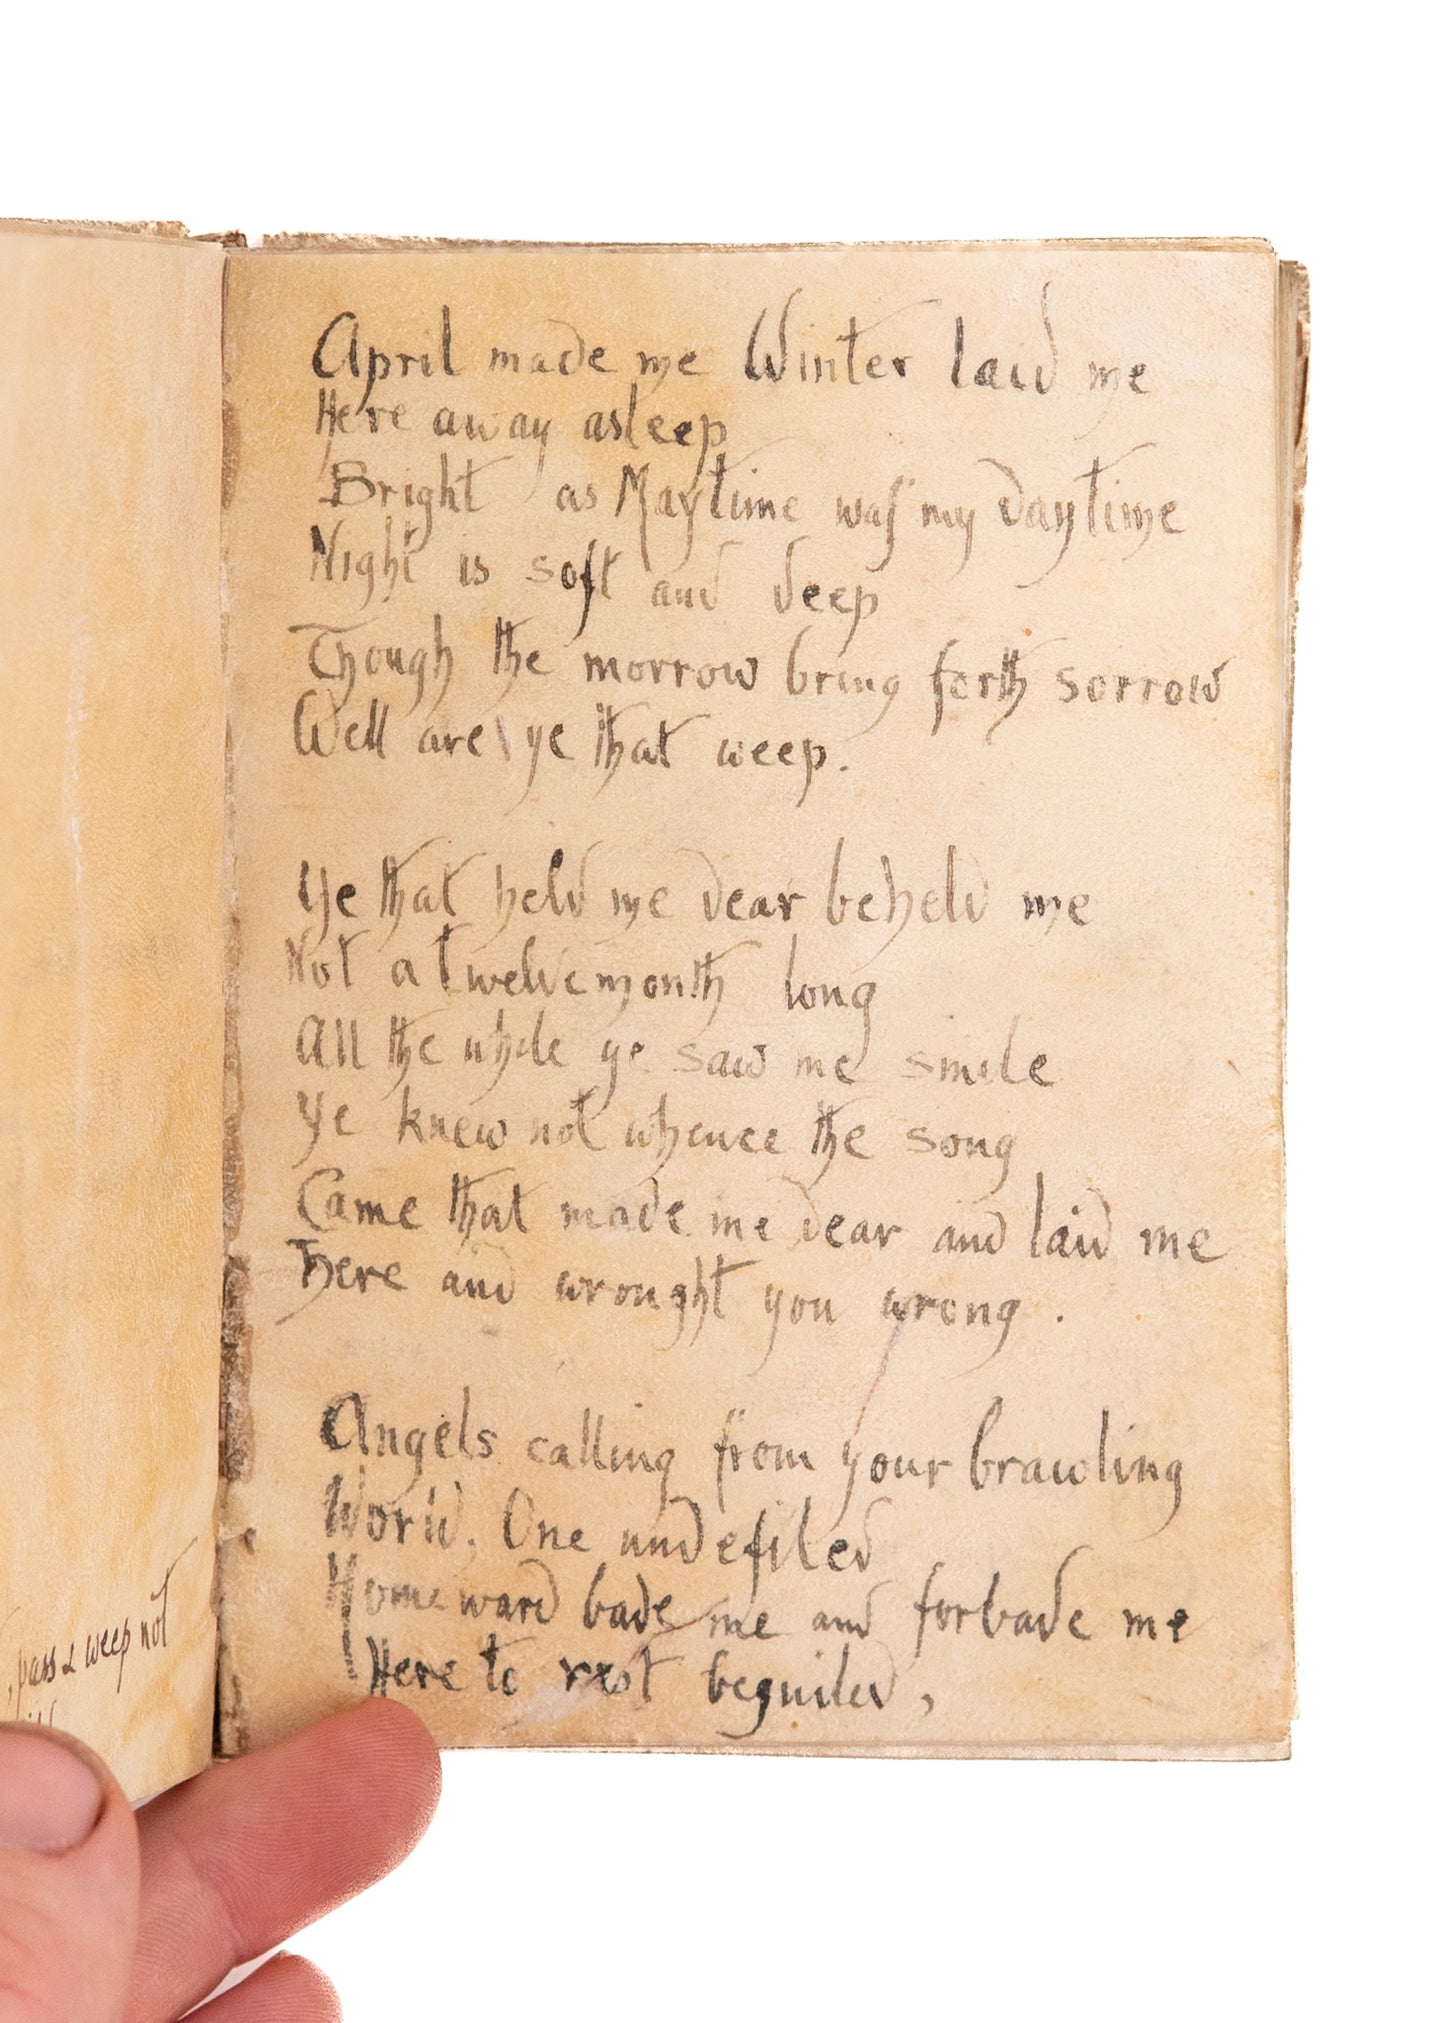 , pass & weep not
April made me Winter laid me
Here away asleep
Bright as Maytime was my daytime
Night is soft and deep
Though the morrow bring forth sorrow
Well are ye that weep.
Ye that held me dear beheld me
Not a twelvemonth long
All the while ye saw me smile
Ye knew not whence the song
Came that made me dear and laid me
Here and wrought you wrong .
Angels calling from your brawling
World, One undefiled
Homeward bade me and forbade me
Here to rest beguiled,